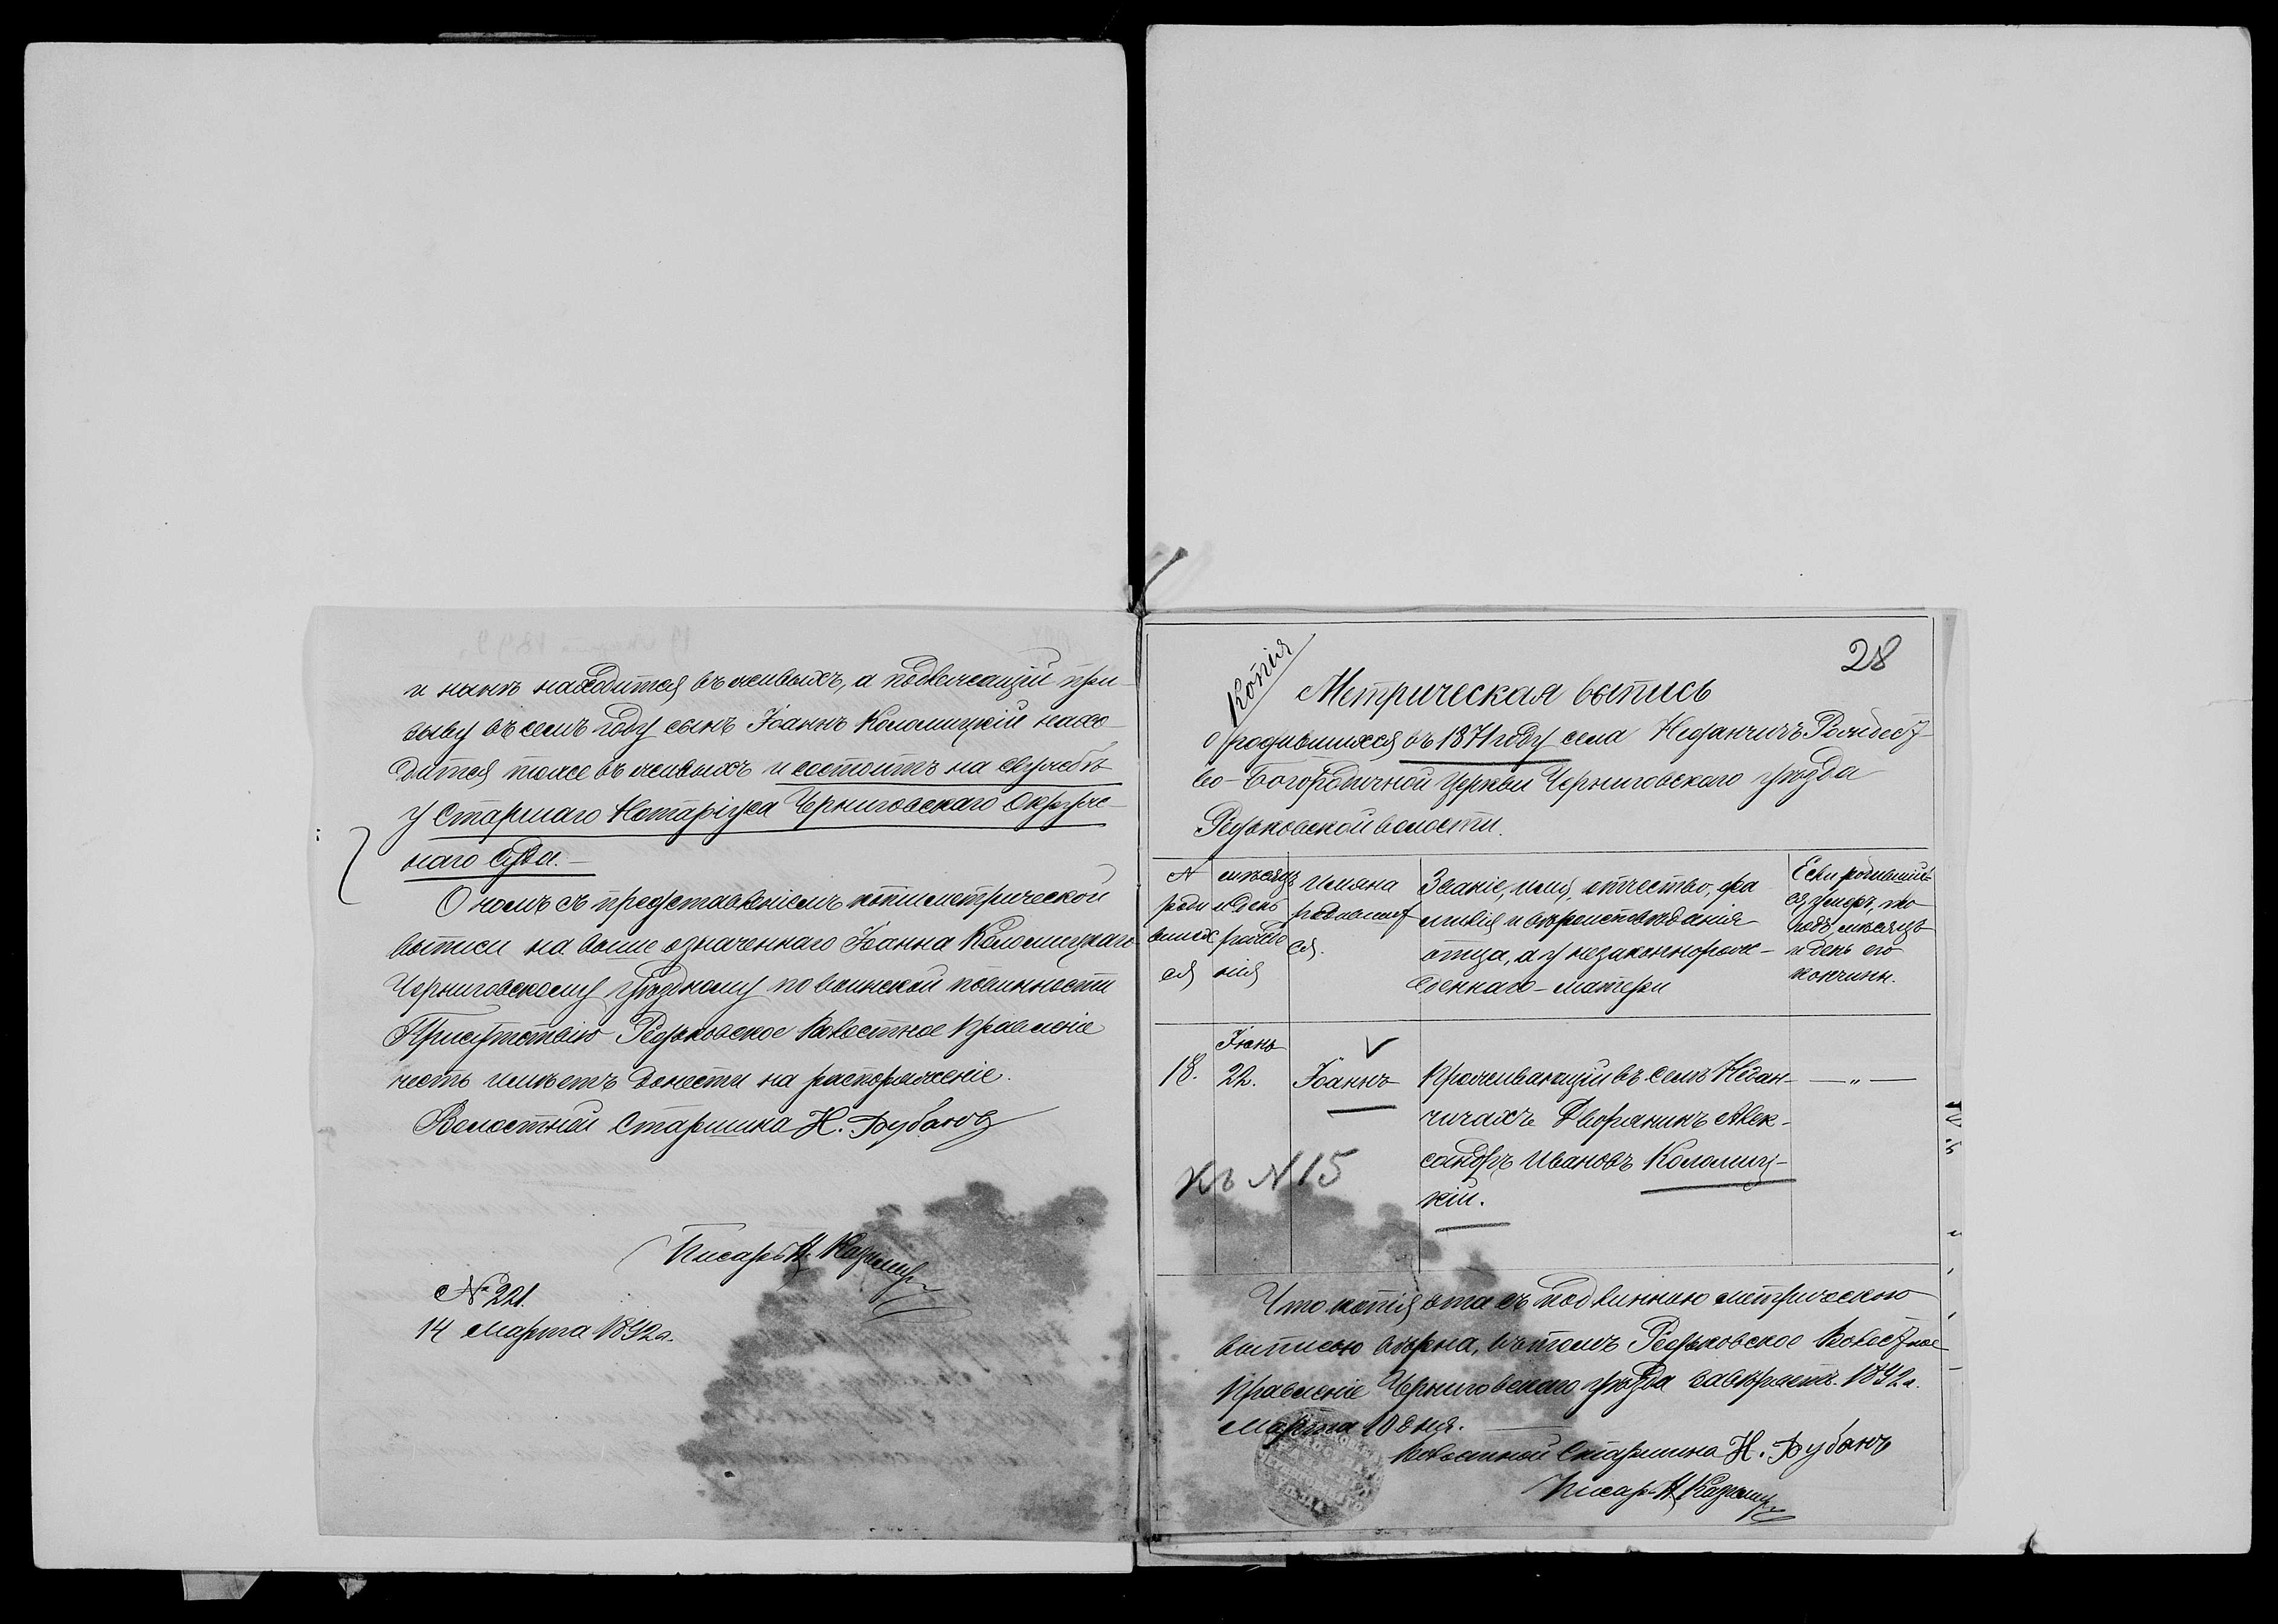 и нынѣ находится въ живыхъ, а подлежащій при-
зыву въ семъ году сынъ Іоаннъ Коломицкій нахо-
дится тоже въ живыхъ и состоитъ на службѣ
у Старшаго Нотаріуса Черниговскаго Окруж-
наго Суда. —
О чемъ съ представленіемъ копіи метрической
выписи на выше означеннаго Іоанна Коломицкаго
Черниговскому уѣздному по воинской повинности
Присутствію Редьковское Волостное Правленіе
честь имѣетъ донести на распоряженіе.
Волостной Старшина Н. Бубанъ
Писарь
№ 221.
14 Марта 1892 г.
28
Копія
Метрическая выпись
о родившихся въ 1871 году села Неданчичъ Рождест-
во-Богородичной Церкви Черниговскаго уѣзда
Редьковской волости.
№ роди вших ся
мѣсяцъ и день рожде нія
Имяна родивших ся.
Званіе, имя, отчество, фа
милія и вѣроисповѣданія
отца, а у незаконнорож-
деннаго — матери
Если родивший-
ся умеръ, то
годъ, мѣсяцъ
и день его
кончины.
18.
Іюнь
22.
Іоаннъ
Проживающій въ селѣ Недан-
чичахъ Дворянинъ Алек-
сандръ Ивановъ Коломиц-
кій.
— „ —
Къ № 15
Что копія эта съ подлинною метрическою
выписью вѣрна, въ томъ Редьковское Волостное
Правленіе Черниговскаго уѣзда завѣряетъ. 1892 г.
Марта 10 дня.
Волостной Старшина Н. Бубанъ
Писарь